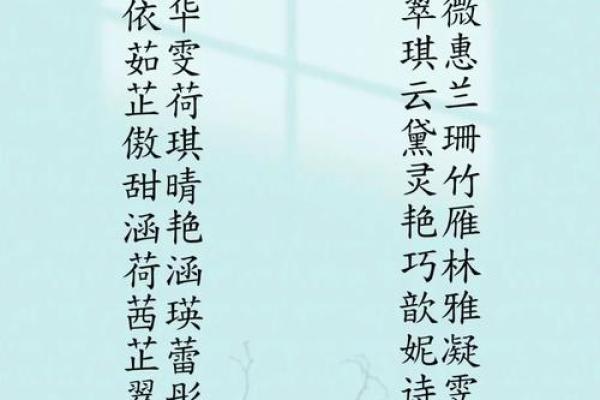 依华 翠薇
茹雯 琪惠
芷荷 云兰
傲琪 黛珊
甜晴 灵竹
涵艳 艳雁
荷涵 巧林
茜瑛 歆雅
芷蕾 妮凝
翠彤 诗雯